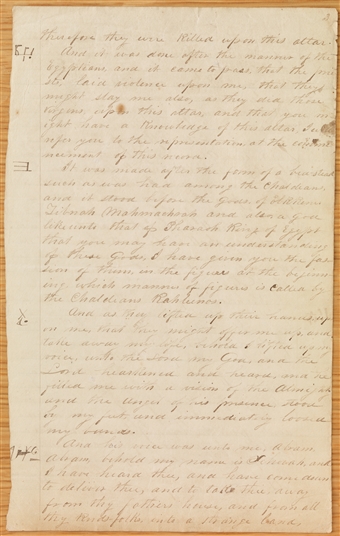 2
therefore they were killed upon this altar.
And it was done after the manner of the
Egyptians, and it came to pass, that the prie
sts, laid violence upon me, that they
might slay me also, as they did those
virgins, upon this altar, and that you m
ight have a knowledge of this altar, I will
refer you to the representation at the commen
cement of this
It was made after the form of a bedstead
such as was had among the Chaldeans
and it stood before the Gods of Elkkener
Zibnah Mahmachrah and also a God
like unto that of Pharaoh King of Egypt
that you may have an understanding
of these Gods, I have given you the fas
ion of them, in the figures at the beginn
ing, which manner of figures is called by
the Chaldeans Rahleenos.
And as they lifted up their hands, up
on me, that they might offer me up, and
take away my life, behold I lifted up my
voice, unto the Lord my God, and the
Lord hearkened and heard, and he
filled me with a vision of the Almighty
and the Angel of his presence stood
by my feet and immediately loosed
my bands.
And his voice was unto me, Abram
Abram, behold my name is and
I have heard thee, and have come down
to deliver thee, and to take thee away
from thy fathers house, and from all
thy Kinsfolks, into a strange land,